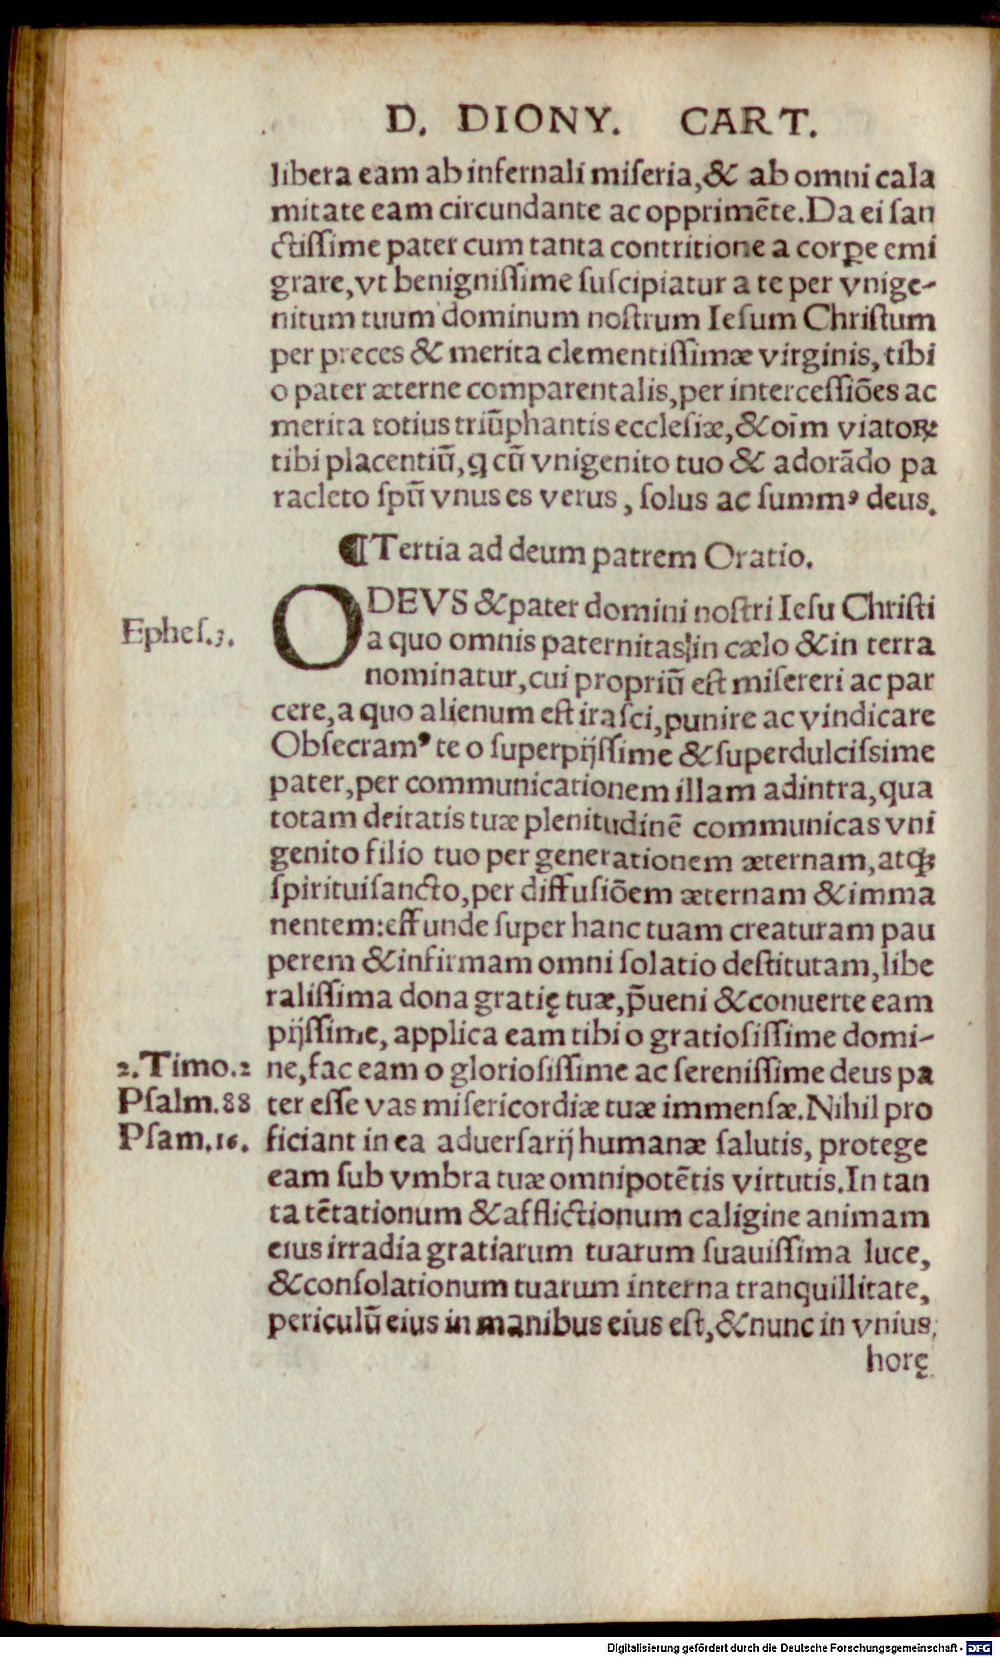 D. DIONY. CART.
libera eam ab infernali miſeria,& ab omni cala
mitate eam circundante ac opprimẽte.Da ei ſan
ctiſſime pater cum tanta contritione a corꝑe emi
grare,vt benigniſſime ſuſcipiatur a te per vnige-
nitum tuum dominum noſtrum Ieſum Chriſtum
per preces & merita clementiſſimæ virginis, tibi
o pater æterne comparentalis,per interceſſiões ac
merita totius triũphantis eccleſiæ,&oĩm viatoꝝ
tibi placentiũ,ꝙ cũ vnigenito tuo & adorãdo pa
racleto ſpũ vnus es verus, ſolus ac ſummꝰ deus.
¶Tertia ad deum patrem Oratio.
ODEVS &pater domini noſtri Ieſu Chriſti
Epheſ.3.
a quo omnis paternitas in cælo &in terra
nominatur,cui propriũ eſt miſereri ac par
cere,a quo alienum eſt iraſci,punire ac vindicare
Obſecramꝰ te o ſuperpijſſime &ſuperdulciſsime
pater,per communicationem illam adintra,qua
totam deitatis tuæ plenitudinẽ communicas vni
genito filio tuo per generationem æternam,atqꝫ
ſpirituiſancto,per diffuſiõem æternam &imma
nentem:effunde ſuper hanc tuam creaturam pau
perem &infirmam omni ſolatio deſtitutam,libe
raliſſima dona gratię tuæ,p̃ueni &conuerte eam
pijſſime, applica eam tibi o gratioſiſſime domi-
2.Timo.2
ne,fac eam o glorioſiſſime ac ſereniſſime deus pa
Pſalm.88
ter eſſe vas miſericordiæ tuæ immenſæ.Nihil pro
Pſam.16.
ficiant in ea aduerſarij humanæ ſalutis, protege
eam ſub vmbra tuæ omnipotẽtis virtutis.In tan
ta tẽtationum &afflictionum caligine animam
eius irradia gratiarum tuarum ſuauiſſima luce,
&conſolationum tuarum interna tranquillitate,
periculũ eius in manibus eius eſt,&nunc in vnius
horę
Digitalisierung gefördert durch die Deutsche Forschungsgemeinschaft - DFG